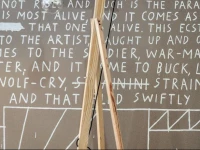 NOT RISE AND THE PARA
IS MOST ALIVE, AND IT COMES AS
THAT ONE ALIVE. THIS ECST
TO THE ARTIST, CAUGHT UP AND O
ES TO THE SOLDIER, WAR-MA
TER, AND IT ME TO BUCK, L
WOLF-CRY, STRAIN
AND THAT SWIFTLY